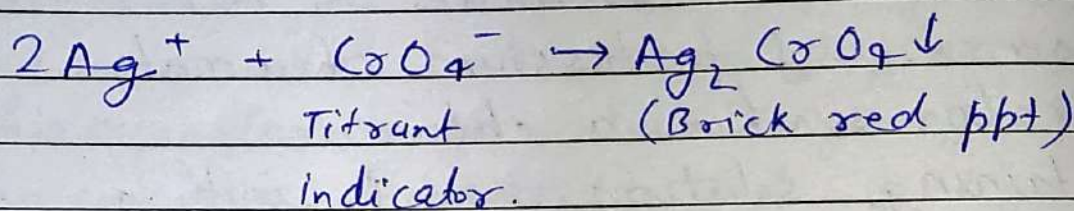 2 Ag⁺ + CrO₄⁻ → Ag₂ CrO₄ ↓
Titrant (Brick red ppt)
indicator.